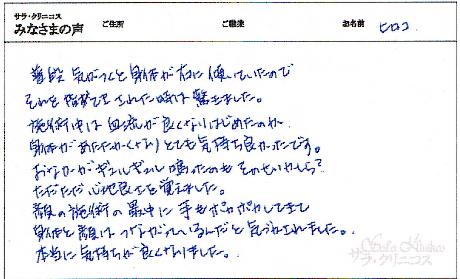 サラ・クリニコス
みなさまの声
ご住所
ご職業
お名前 ヒロコ
普段 気がつくと 身体が右に傾いていたので
それを指摘された時は 驚きました。
施術中は 血流が良くなりはじめたのか
身体があたたかくなり とても気持ち良かったです。
おなかがギュルギュル鳴ったのも そのせいかしら?
ただただ 心地良さを覚えました。
顔の施術の最中に 手もポカポカしてきて
身体と顔は つながっているんだと 気づかされました。
本当に 気持ちが良くなりました。
Sala Klinikos
サラ・クリニコス